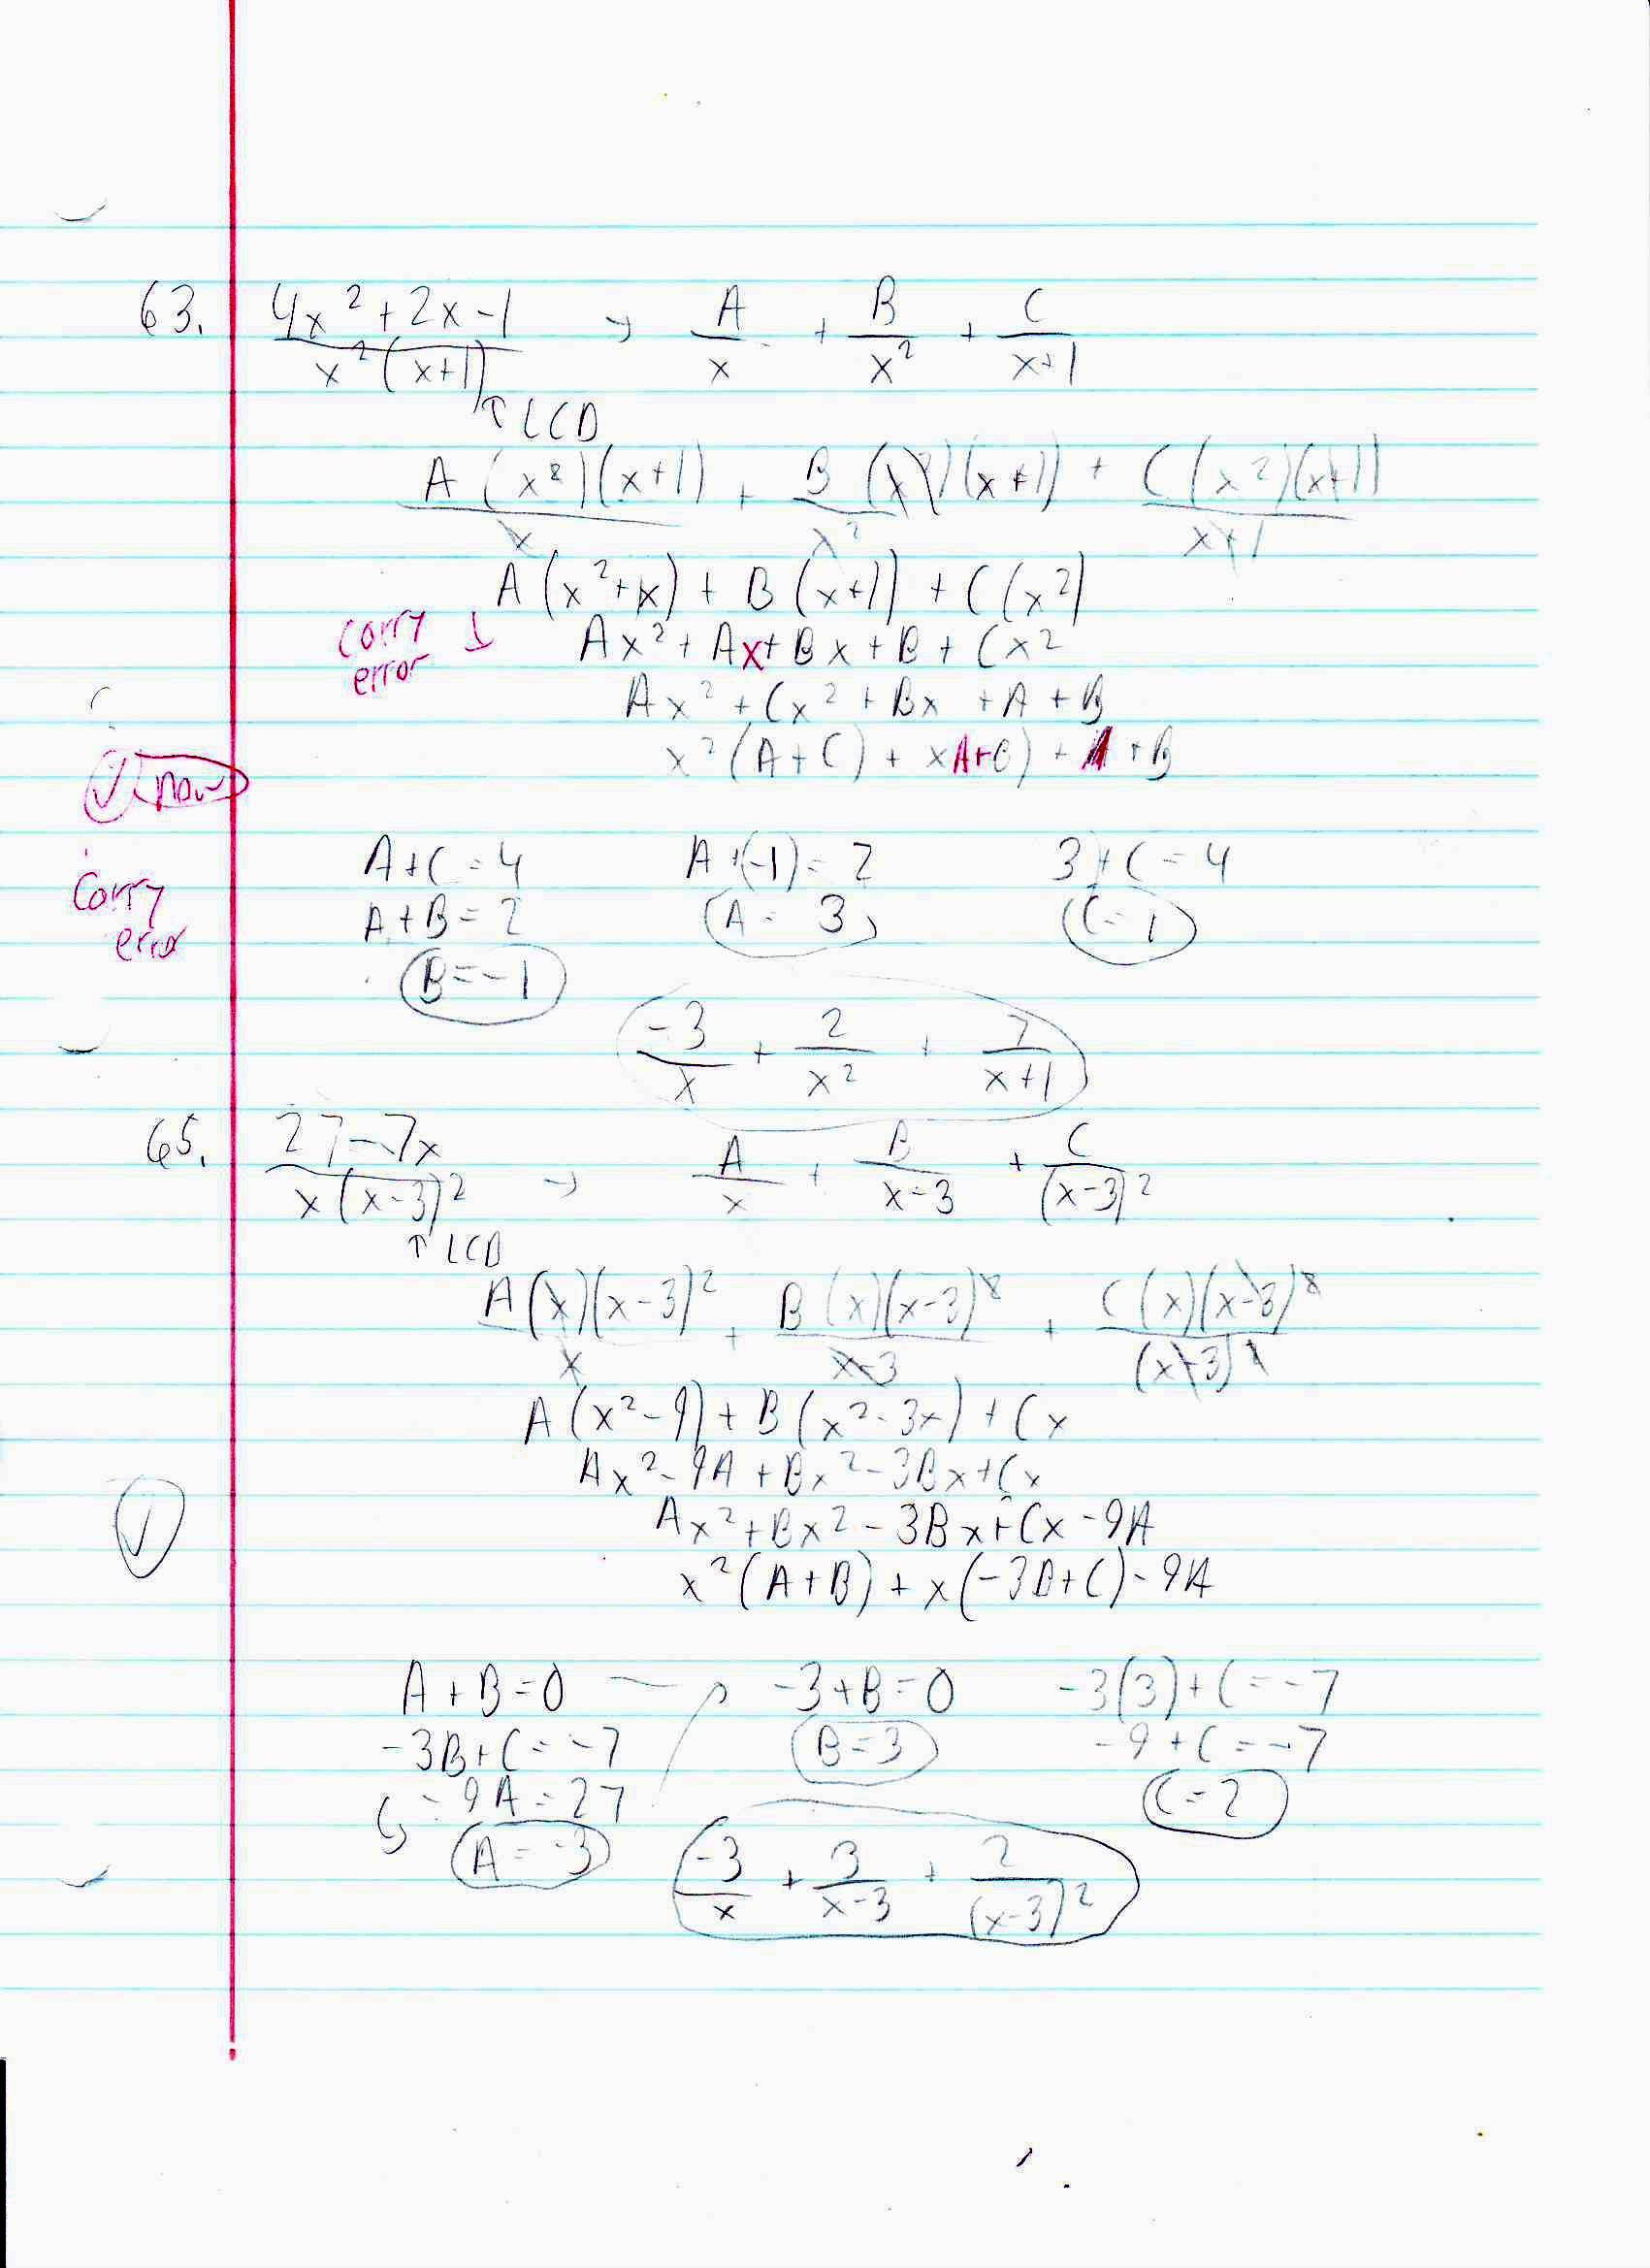 63. (4x² + 2x - 1)/(x²(x+1)) → A/x + B/x² + C/(x+1)
↑ LCD
A(x²)(x+1)/x + B(x²)(x+1)/x² + C(x²)(x+1)/(x+1)
A(x²+x) + B(x+1) + C(x²)
carry error ↓ Ax² + Ax + Bx + B + Cx²
Ax² + Cx² + Bx + A + B
x²(A+C) + xA+B) + A + B
✓ now
carry error
A+C = 4 A+(-1) = 2 3+C = 4
A+B = 2 A = 3 C = 1
B = -1
-3/x + 2/x² + 7/(x+1)
65. (27-7x)/(x(x-3)²) → A/x + B/(x-3) + C/(x-3)²
↑ LCD
A(x)(x-3)²/x + B(x)(x-3)²/(x-3) + C(x)(x-3)²/(x-3)²
A(x²-9) + B(x²-3x) + Cx
Ax²-9A + Bx²-3Bx+Cx
Ax²+Bx²-3Bx+Cx-9A
✓
x²(A+B) + x(-3B+C)-9A
A+B=0 → -3+B=0 -3(3)+C=-7
-3B+C=-7 B=3 -9+C=-7
-9A=27 C=2
A=-3
-3/x + 3/(x-3) + 2/(x-3)²